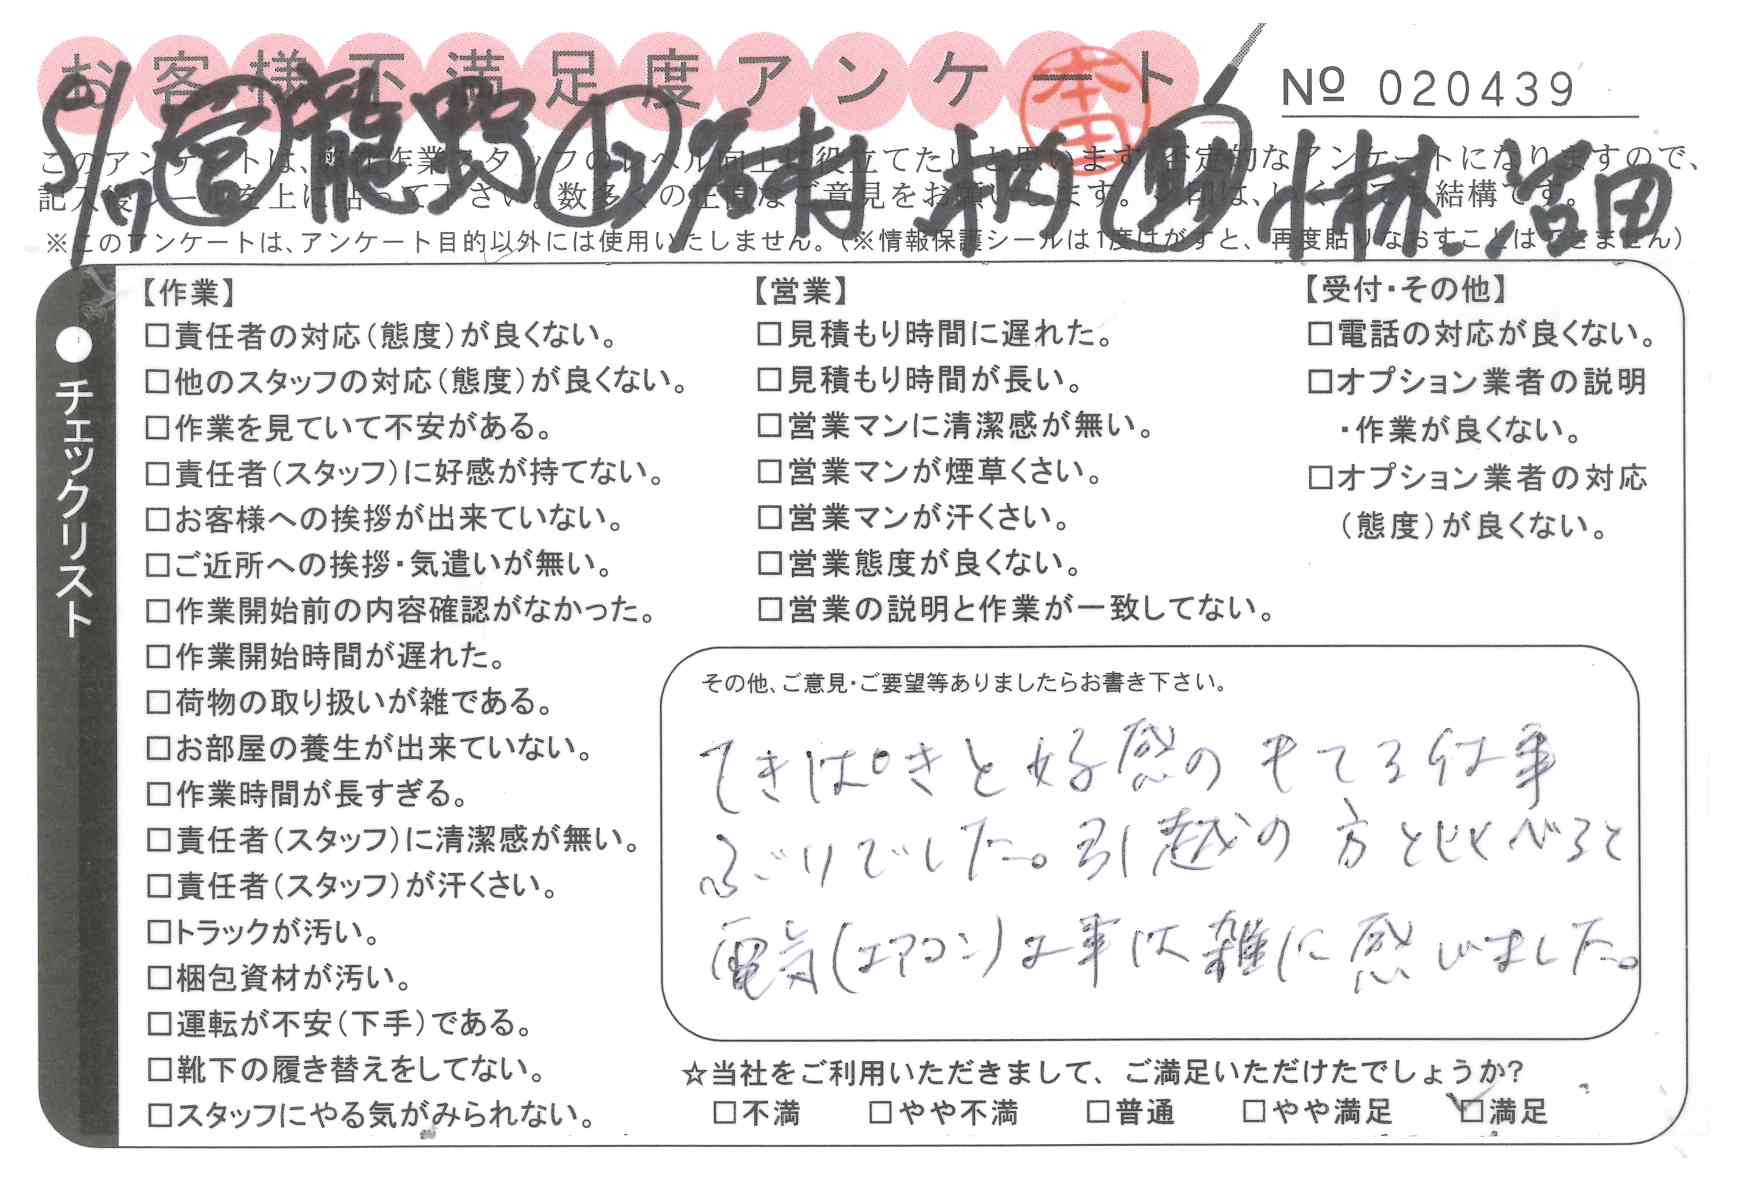 お客様不満足度アンケート
№ 020439
5/17 営 龍野
本田
小林 沼田
このアンケートは、
※このアンケートは、アンケート目的以外には使用いたしません。（※情報保護シールは1度はがすと、再度貼りなおすことはできません）
●チェックリスト
【作業】
□責任者の対応（態度）が良くない。
□他のスタッフの対応（態度）が良くない。
□作業を見ていて不安がある。
□責任者（スタッフ）に好感が持てない。
□お客様への挨拶が出来ていない。
□ご近所への挨拶・気遣いが無い。
□作業開始前の内容確認がなかった。
□作業開始時間が遅れた。
□荷物の取り扱いが雑である。
□お部屋の養生が出来ていない。
□作業時間が長すぎる。
□責任者（スタッフ）に清潔感が無い。
□責任者（スタッフ）が汗くさい。
□トラックが汚い。
□梱包資材が汚い。
□運転が不安（下手）である。
□靴下の履き替えをしてない。
□スタッフにやる気がみられない。
【営業】
□見積もり時間に遅れた。
□見積もり時間が長い。
□営業マンに清潔感が無い。
□営業マンが煙草くさい。
□営業マンが汗くさい。
□営業態度が良くない。
□営業の説明と作業が一致してない。
【受付・その他】
□電話の対応が良くない。
□オプション業者の説明
・作業が良くない。
□オプション業者の対応
（態度）が良くない。
その他、ご意見・ご要望等ありましたらお書き下さい。
てきぱきと好感のもてる仕事
ぶりでした。引越の方と比べると
電気（エアコン）工事は雑に感じました。
☆当社をご利用いただきまして、ご満足いただけたでしょうか?
□不満 □やや不満 □普通 □やや満足 ☑満足